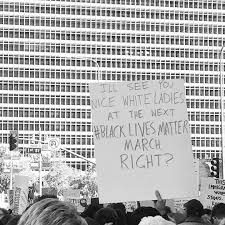 I'LL SEE YOU
NICE WHITE LADIES
AT THE NEXT
#BLACK LIVES MATTER
MARCH
RIGHT?